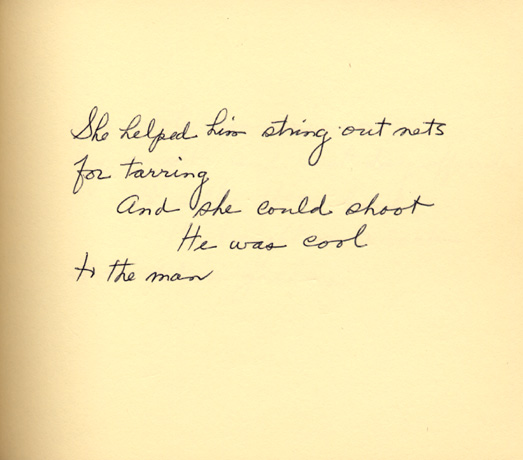 She helped him string out nets
for tarring
And she could shoot
He was cool
to the man